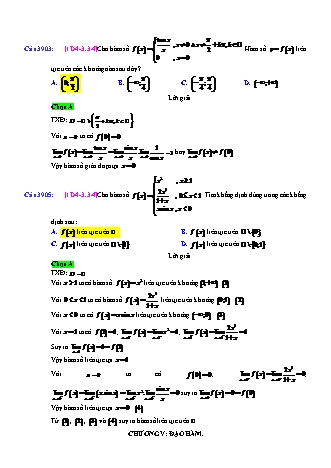 Câu 3903: [1D4-3.3-4] Cho hàm số f(x) = { tan x / x , x ≠ 0 ∧ x ≠ π/2 + kπ, k ∈ ℤ ; 0 , x = 0 . Hàm số y = f(x) liên
tục trên các khoảng nào sau đây?
A. (0; π/2). B. (-∞; π/4). C. (-π/4; π/4). D. (-∞; +∞)
Lời giải
Chọn A
TXĐ: D = \ { π/2 + kπ, k ∈ }
Với x = 0 ta có f(0) = 0
hay lim f(x) ≠ f(0)
Vậy hàm số gián đoạn tại x = 0
Câu 3905: [1D4-3.3-4] Cho hàm số f(x) = { x² , x ≥ 1 ; 2x³/(1+x) , 0 ≤ x < 1 ; x sin x , x < 0 . Tìm khẳng định đúng trong các khẳng
định sau:
A. f(x) liên tục trên B. f(x) liên tục trên \ {0}
C. f(x) liên tục trên \ {1} D. f(x) liên tục trên \ {0;1}
Lời giải
Chọn A
TXĐ: D =
Với x > 1 ta có hàm số f(x) = x² liên tục trên khoảng (1; +∞) (1)
Với 0 < x < 1 ta có hàm số f(x) = 2x³/(1+x) liên tục trên khoảng (0;1) (2)
Với x < 0 ta có f(x) = x sin x liên tục trên khoảng (-∞; 0) (3)
Với x = 1 ta có f(1) = 1; lim f(x) = lim x² = 1; lim f(x) = lim 2x³/(1+x) = 1
Suy ra lim f(x) = 1 = f(1)
Vậy hàm số liên tục tại x = 1
Với x = 0 ta có f(0) = 0, lim f(x) = lim 2x³/(1+x) = 0
lim f(x) = lim (x sin x) = lim x². lim sin x / x = 0 suy ra lim f(x) = 0 = f(0)
Vậy hàm số liên tục tại x = 0 (4)
Từ (1), (2), (3) và (4) suy ra hàm số liên tục trên
CHƯƠNG V: ĐẠO HÀM.